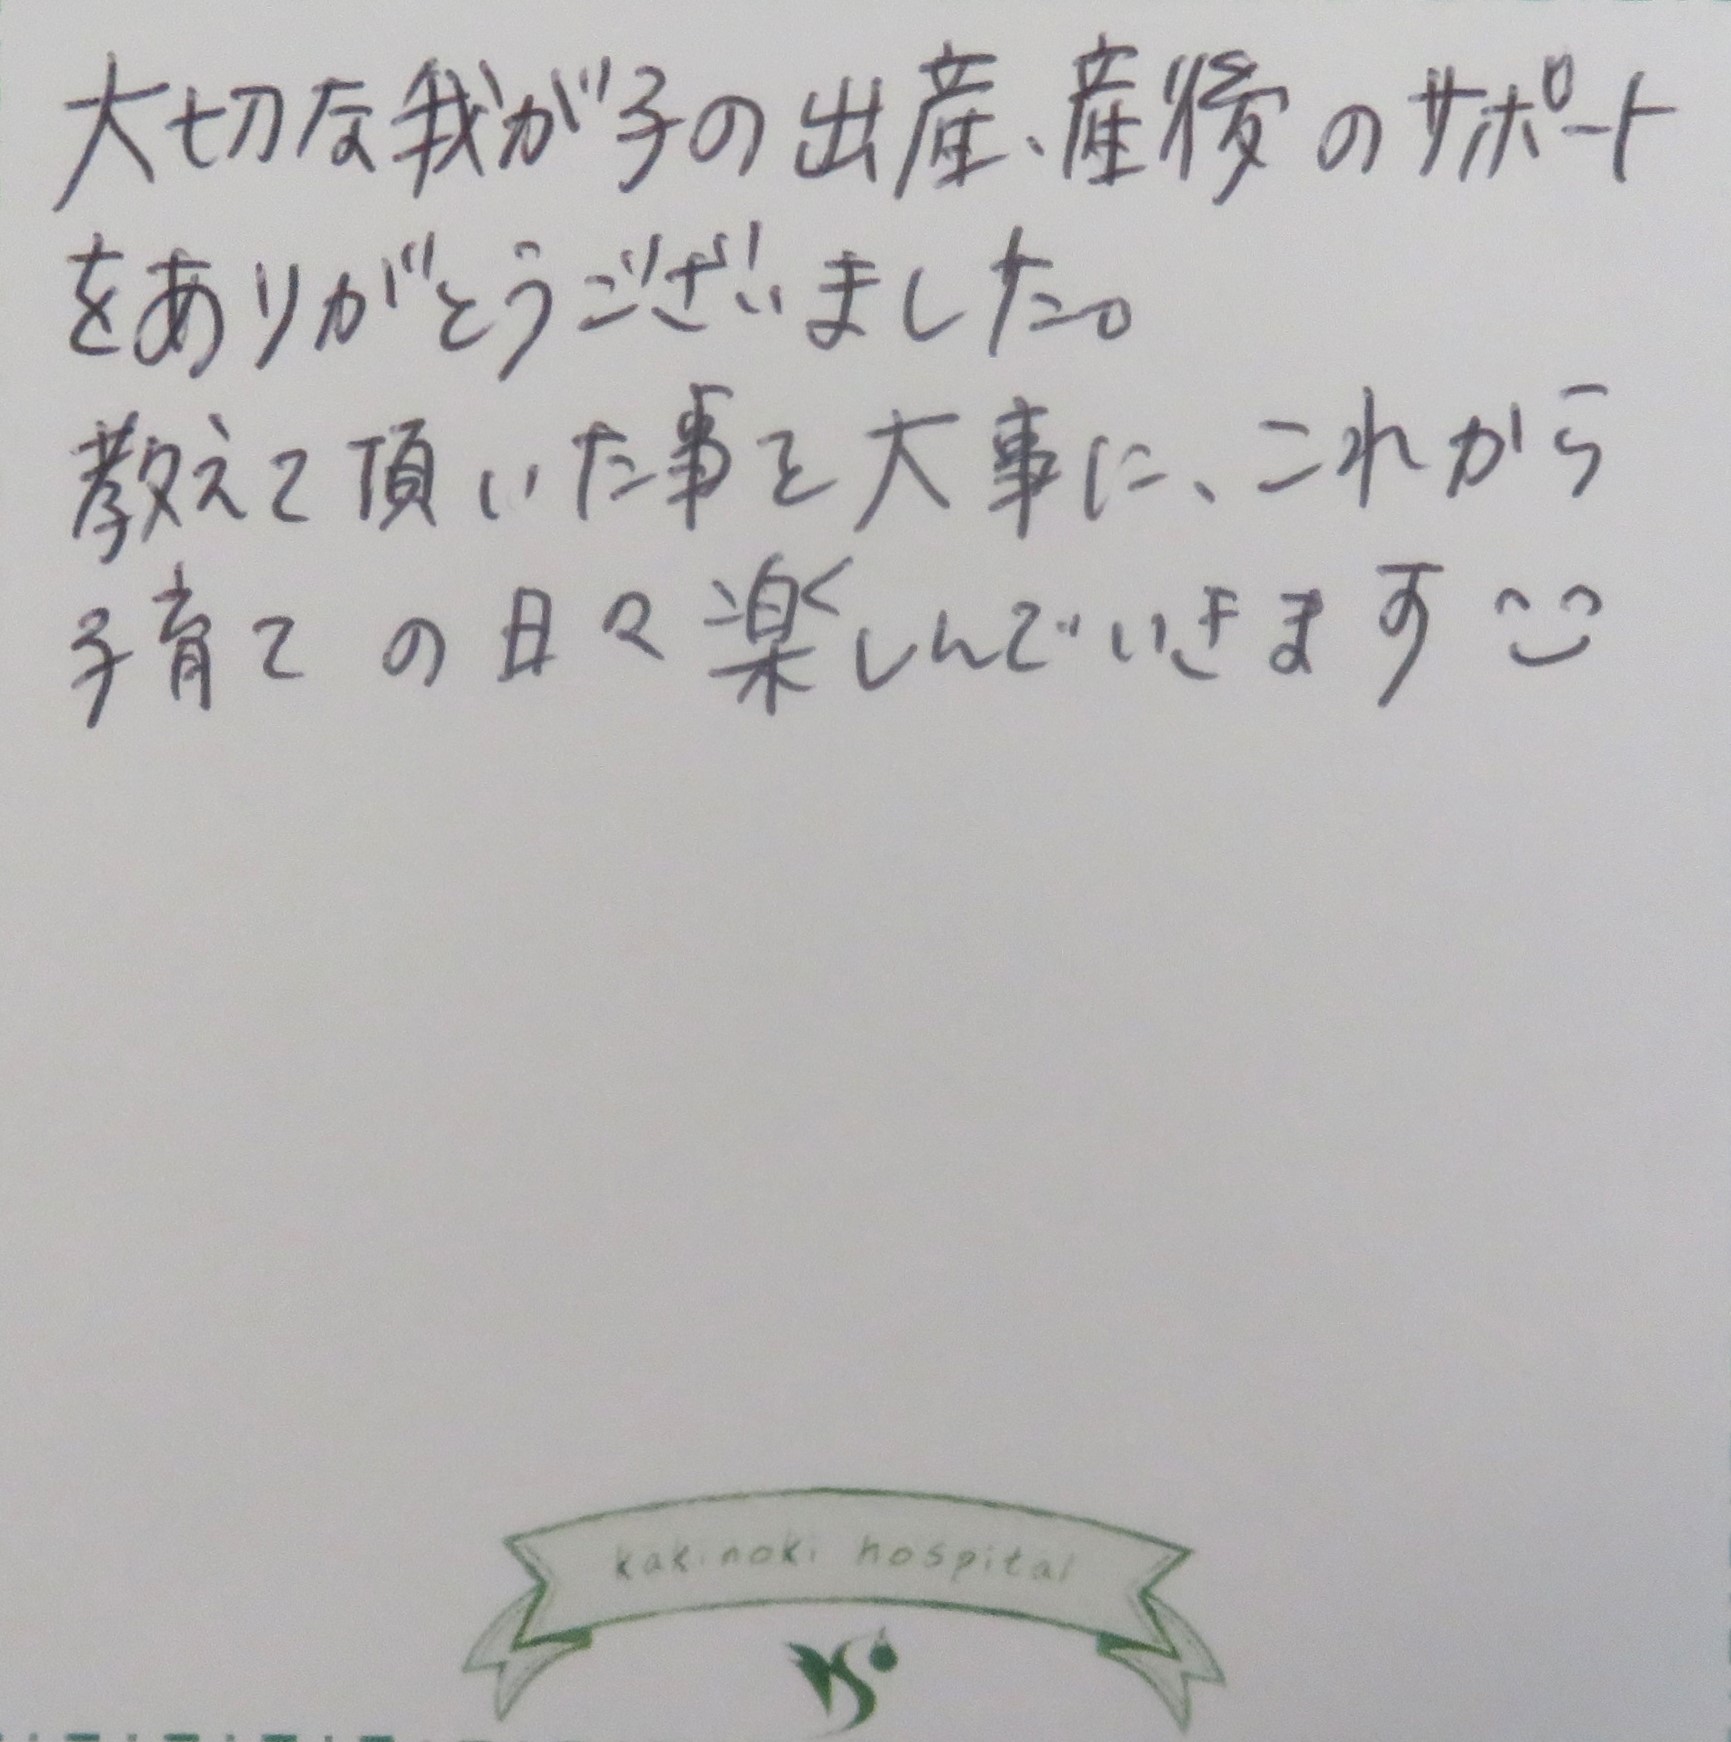 大切な我が子の出産、産後のサポート
をありがとうございました。
教えて頂いた事を大事に、これから
子育ての日々楽しんでいきます
kakinoki hospital